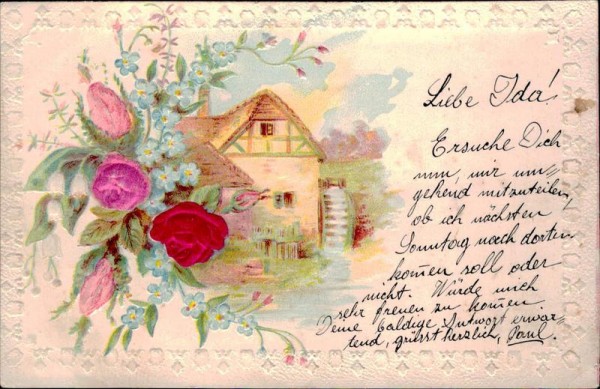 Liebe Ida!
Ersuche Dich
nun, mir um=
gehend mitzuteilen,
ob ich nächsten
Sonntag nach dorten
kom̄en soll oder
nicht. Würde mich
sehr freuen zu kom̄en.
Deine baldige Antwort erwar=
tend, grüsst herzlich, Paul.